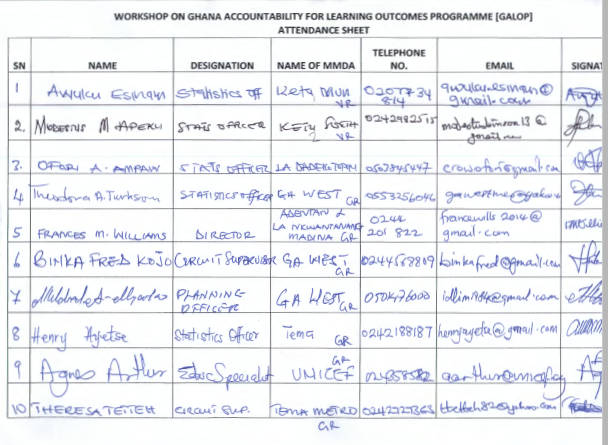 WORKSHOP ON GHANA ACCOUNTABILITY FOR LEARNING OUTCOMES PROGRAMME [GALOP]
ATTENDANCE SHEET
SN NAME DESIGNATION NAME OF MMDA TELEPHONE NO. EMAIL SIGNAT
1 Awuku Esmam Statistics Off Keta Mun VR 0207734 814 gmail.com
2. MODESTUS M APEKU STATS OFFICER KETU SOUTH VR 0242982515
3. OFORI A. AMPAIN STATS OFFICER LA 0507845447
4 Theodora A. Turkson STATISTICS OFFICER GA WEST GR 0553256046
5 FRANCES M. WILLIAMS DIRECTOR ADENTAN & LA NKWANTANANG MADINA GR 0244 201 822 francwills2014@ gmail.com
6 BINKA FRED KOJO CIRCUIT SUPERVISOR GA WEST GR 0244568809 binkafred@gmail.com
7 PLANNING OFFICER GA WEST GR 0501476000
8 Henry Ayetse Statistics Officer Tema GR 0242188187
9 Agnes Arthur Educ Specialist GR UNICEF
10 THERESA TETTEH CIRCUIT SUP. TEMA METRO GR